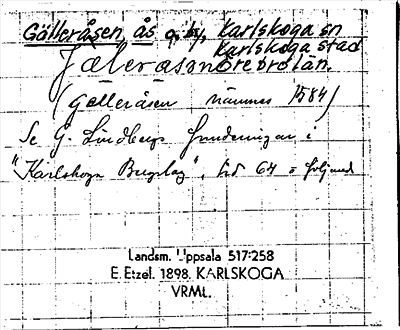 Gälleråsen, ås o. by, Karlskoga sn
Karlskoga stad
Jäleråsen Örebro län.
(Gälleråsen nämnes 1584)
Se G. Lindbergs funderingar i
"Karlskoga Bergslag", sid 64 o följand
Landsm. Uppsala 517:258
E. Etzel. 1898. KARLSKOGA
VRML.